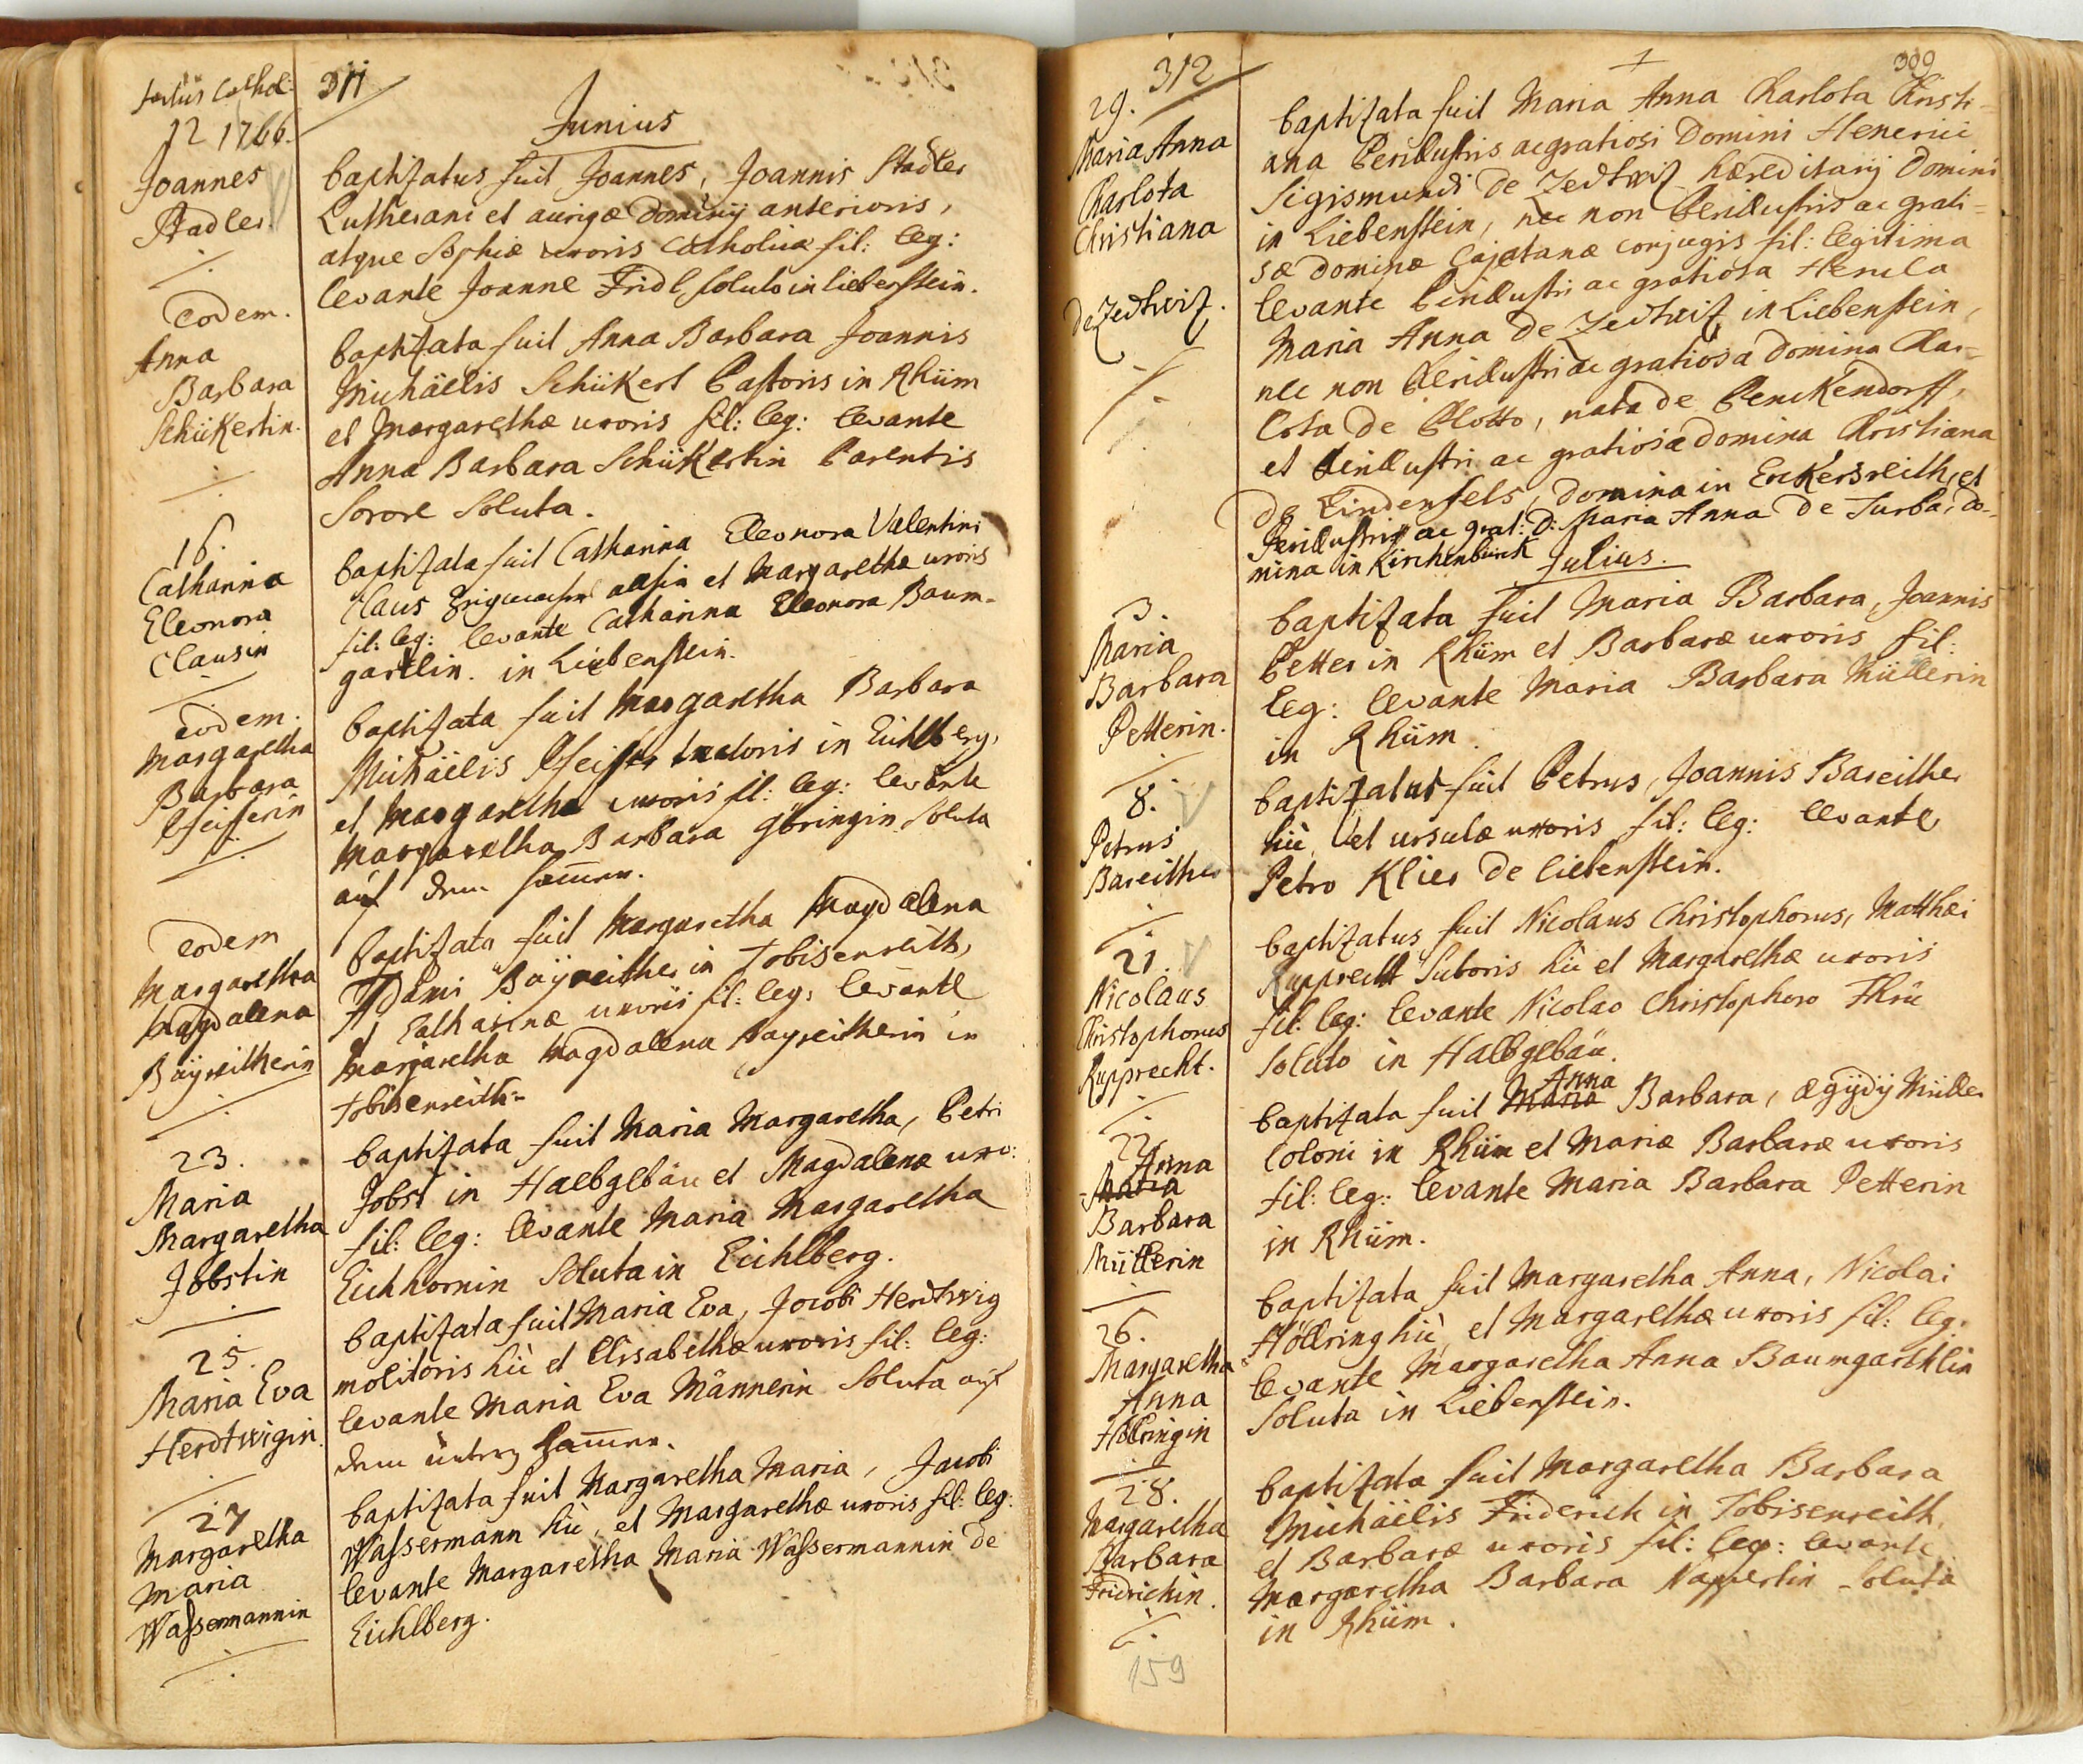 311
Junius
12 1766.
Joannes
Stadler.
baptizatus fuit Joannes, Joannis Stadler
Lutherani et aurigæ Dominij anterioris,
atque Sophiæ uxoris Catholicæ fil: leg:
levante Joanne Fridl soluto in liebenstein.
Eodem.
Anna
Barbara
Schükertin.
baptizata fuit Anna Barbara Joannis
Michäelis Schükert Pastoris in Rhüm
et Margarethæ uxoris fil: leg: levante
Anna Barbara Schükertin Parentis
Sorore Soluta.
16.
Catharina
Eleonora
Clausin
baptizata fuit Catharina Eleonora Valentini
Claus et Margaretha uxoris
fil: leg: levante Catharina Eleonora Baum-
gartlin. in Liebenstein.
eodem.
Margaretha
Barbara
Pfeifferin
baptizata fuit Margaretha Barbara
Michäelis Pfeiffer in Eichlberg,
et Margaretha uxoris fil: leg: levante
Margaretha Barbara Göringin Soluta
auf dem hammer.
eodem
Margaretha
Magdalena
Bäyreitherin
baptizata fuit Margaretha Magdalena
Adami Bäyreither in Tobisenreith,
et Catharinæ uxoris fil: leg: levante
Margaretha Magdalena Bayreitherin in
Tobisenreith.
23.
Maria
Margaretha
Jobstin
baptizata fuit Maria Margaretha, Petri
Jobst in Halbgebäu et Magdalenæ uxo:
fil: leg: levante Maria Margaretha
Eichhornin Soluta in Eichlberg.
25.
Maria Eva
Herdtwigin.
baptizata fuit Maria Eva, Jocobi Herdtwig
molitoris hic et Elisabethæ uxoris fil: leg:
levante Maria Eva Männerin Soluta auf
dem untern hammer.
27
Margaretha
Maria
Wassermannin
baptizata fuit Margaretha Maria, Jacobi
Wassermann hic, et Margarethæ uxoris fil: leg:
levante Margaretha Maria Wassermannin de
Eichlberg.
312
309
29.
Maria Anna
Charlota
Christiana
de Zedtwiz.
baptizata fuit Maria Anna Charlota Christi-
ana Perillustris ac gratiosi Domini Henerici
Sigismundi de Zedtwiz hæreditarij Domini
in Liebenstein, nec non Perillustris ac grati-
sæ Dominæ Cajetanæ conjugis fil: legitima
levante Perillustri ac gratiosa Herula
Maria Anna de Zedtwiz in Liebenstein,
nec non Perillustri ac gratiosa Domina Char-
lota de Plotto, nata de Benckendorff,
et Perillustri ac gratiosa Domina Christiana
de Lindenfels, Domina in Erkersreith, et
Perillustris ac grat: D: Maria Anna de Turba, do-
mina in Kirchenbürck
Julius.
3.
Maria
Barbara
Petterin.
baptizata fuit Maria Barbara, Joannis
Petter in Rhüm et Barbaræ uxoris fil:
leg: levante Maria Barbara Müllerin
in Rhüm.
8.
Petrus
Bareither
baptizatus fuit Petrus, Joannis Bareither
hic, et ursulæ uxoris fil: leg: levante
Petro Klier de liebenstein.
21.
Nicolaus
Christophorus
Rupprecht.
baptizatus fuit Nicolaus Christophorus, Matthæi
Rupprecht Sutoris hic et Margarethæ uxoris
fil: leg: levante Nicolao Christophoro Thrü
Soluto in Halbgebäu.
22.
Anna
Maria
Barbara
Müllerin
Anna
baptizata fuit Maria Barbara, Ægijdij Müller
Coloni in Rhüm et Mariæ Barbaræ uxoris
fil: leg: levante Maria Barbara Petterin
in Rhüm.
26.
Margaretha
Anna
Höllringin
baptizata fuit Margaretha Anna, Nicolai
Höllring hic, et Margarethæ uxoris fil: leg:
levante Margaretha Anna Baumgarthlin
Soluta in Liebenstein.
28.
Margaretha
Barbara
Fridrichin.
baptizata fuit Margaretha Barbara
Michäelis Friderich in Tobisenreith,
et Barbaræ uxoris fil: leg: levante
Margaretha Barbara Soluta
in Rhüm.
159